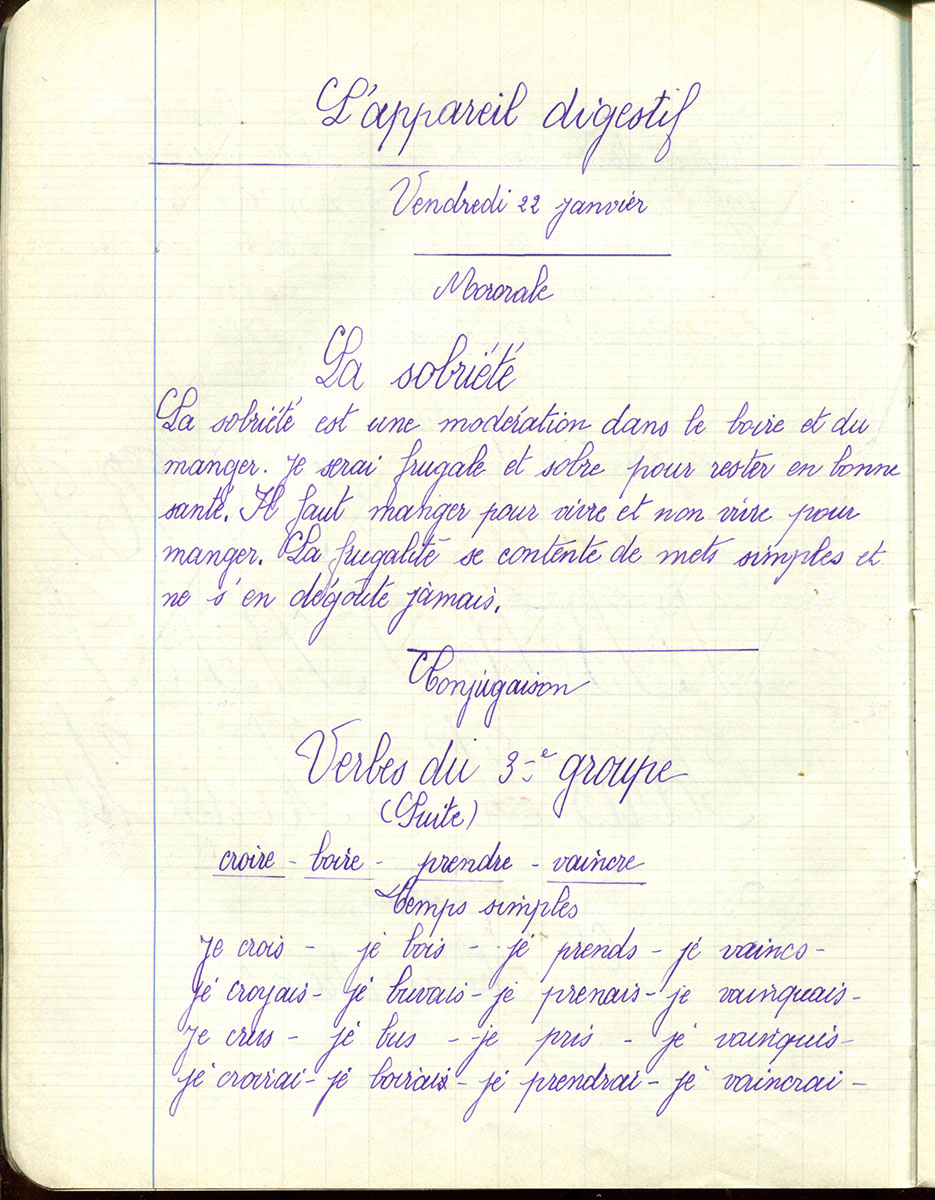 L'appareil digestif
Vendredi 22 janvier
Morale
La sobriété
La sobriété est une modération dans le boire et du
manger. Je serai frugale et sobre pour rester en bonne
santé. Il faut manger pour vivre et non vivre pour
manger. La frugalité se contente de mets simples et
ne s'en dégoûte jamais.
Conjugaison
Verbes du 3e groupe
(Suite)
croire - boire - prendre - vaincre
Temps simples
Je crois - je bois - je prends - je vaincs -
je croyais - je buvais - je prenais - je vainquais -
Je crus - je bus - je pris - je vainquis -
je croirai - je boirai - je prendrai - je vaincrai -